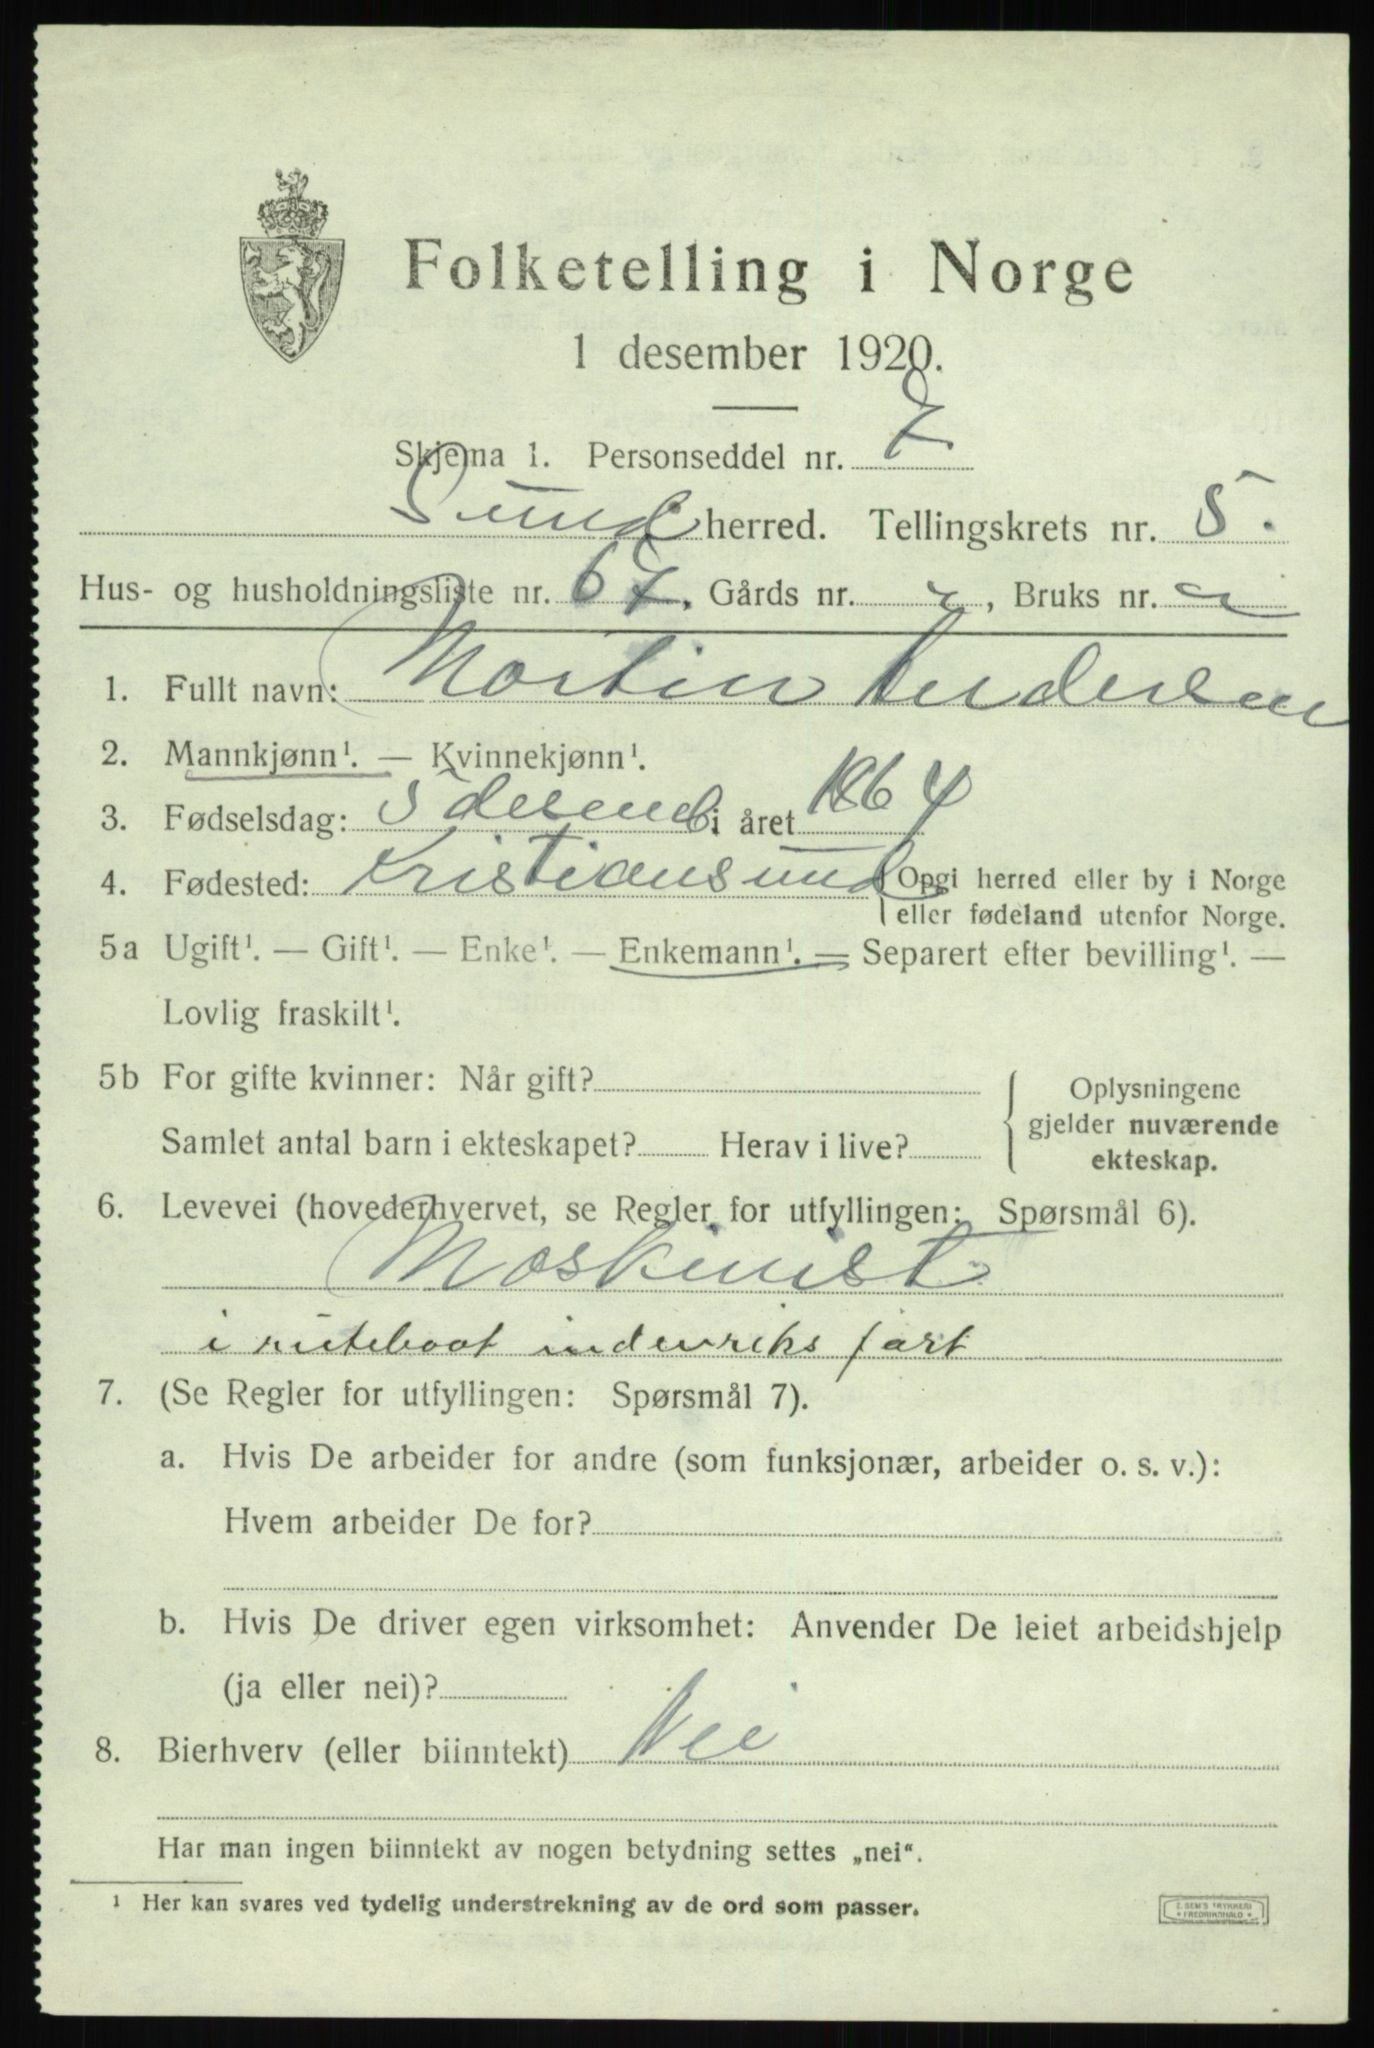 Folketelling i Norge
1 desember 1920.
Skjema 1. Personseddel nr. 7
Sund herred. Tellingskrets nr. 5.
Hus- og husholdningsliste nr. 67, Gårds nr. , Bruks nr.
1. Fullt navn: Martin Andersen
2. Mannkjønn¹. — Kvinnekjønn¹.
3. Fødselsdag: 5 desemb i året 1864
4. Fødested: Kristiansund Opgi herred eller by i Norge
eller fødeland utenfor Norge.
5a Ugift¹. — Gift¹. — Enke¹. — Enkemann¹. — Separert efter bevilling¹. —
Lovlig fraskilt¹.
5b For gifte kvinner: Når gift?
Samlet antal barn i ekteskapet? Herav i live?
Oplysningene
gjelder nuværende
ekteskap.
6. Levevei (hovederhvervet, se Regler for utfyllingen: Spørsmål 6).
Maskinist
i ruteboat indenriks fart
7. (Se Regler for utfyllingen: Spørsmål 7).
a. Hvis De arbeider for andre (som funksjonær, arbeider o. s. v.):
Hvem arbeider De for?
b. Hvis De driver egen virksomhet: Anvender De leiet arbeidshjelp
(ja eller nei)?
8. Bierhverv (eller biinntekt) Nei
Har man ingen biinntekt av nogen betydning settes „nei“.
¹ Her kan svares ved tydelig understrekning av de ord som passer.
E. SEM'S TRYKKERI
FREDRIKSHALD